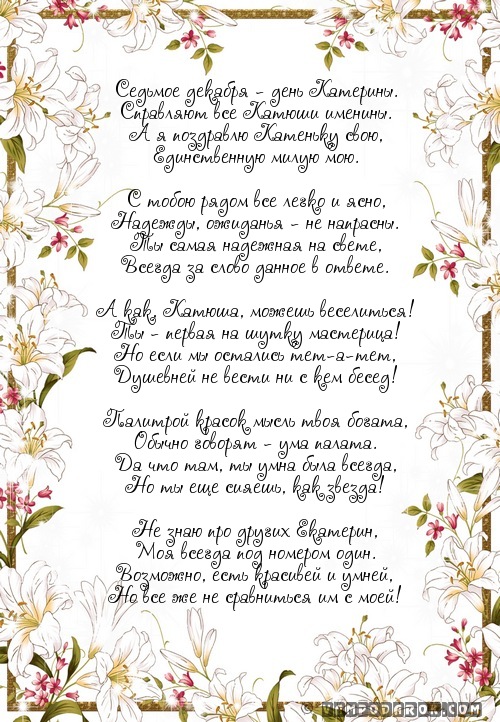 Седьмое декабря - день Катерины.
Справляют все Катюши именины.
А я поздравлю Катеньку свою,
Единственную милую мою.
С тобою рядом все легко и ясно,
Надежды, ожиданья - не напрасны.
Ты самая надежная на свете,
Всегда за слово данное в ответе.
А как, Катюша, можешь веселиться!
Ты - первая на шутку мастерица!
Но если мы остались тет-а-тет,
Душевней не вести ни с кем бесед!
Палитрой красок мысль твоя богата,
Обычно говорят - ума палата.
Да что там, ты умна была всегда,
Но ты еще сияешь, как звезда!
Не знаю про других Екатерин,
Моя всегда под номером один.
Возможно, есть красивей и умней,
Но все же не сравниться им с моей!
© VAMPODAROK.COM